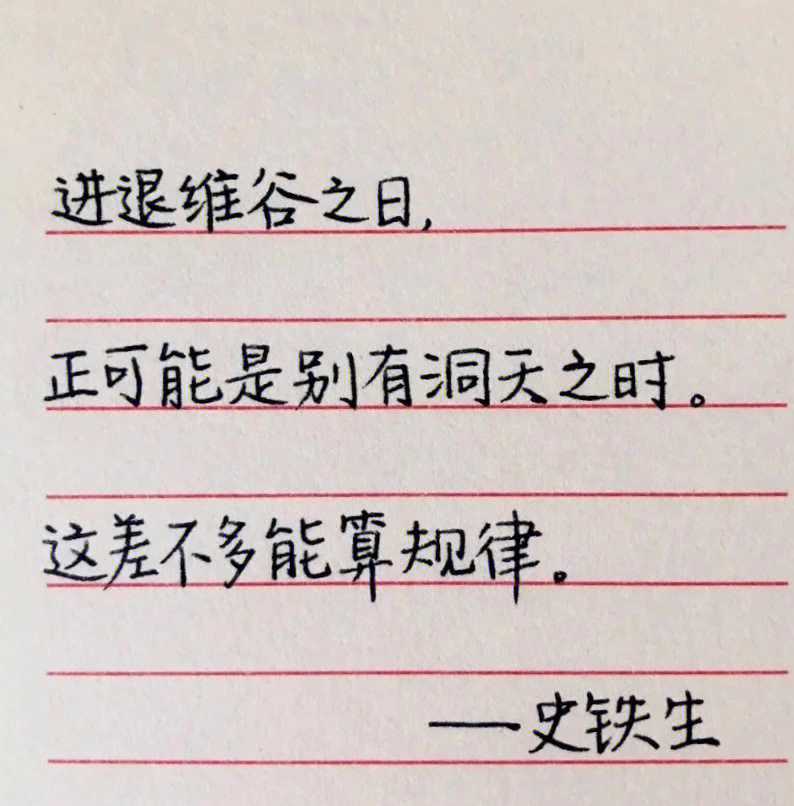 进退维谷之日,
正可能是别有洞天之时。
这差不多能算规律。
——史铁生